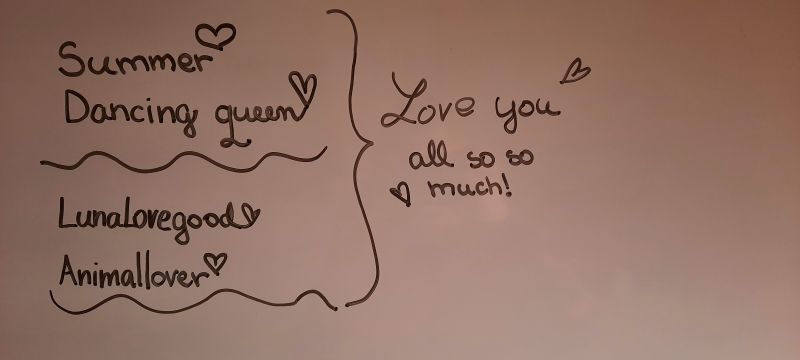 Summer
Dancing queen
LunaLovegood
Animallover
Love you
all so so
much!